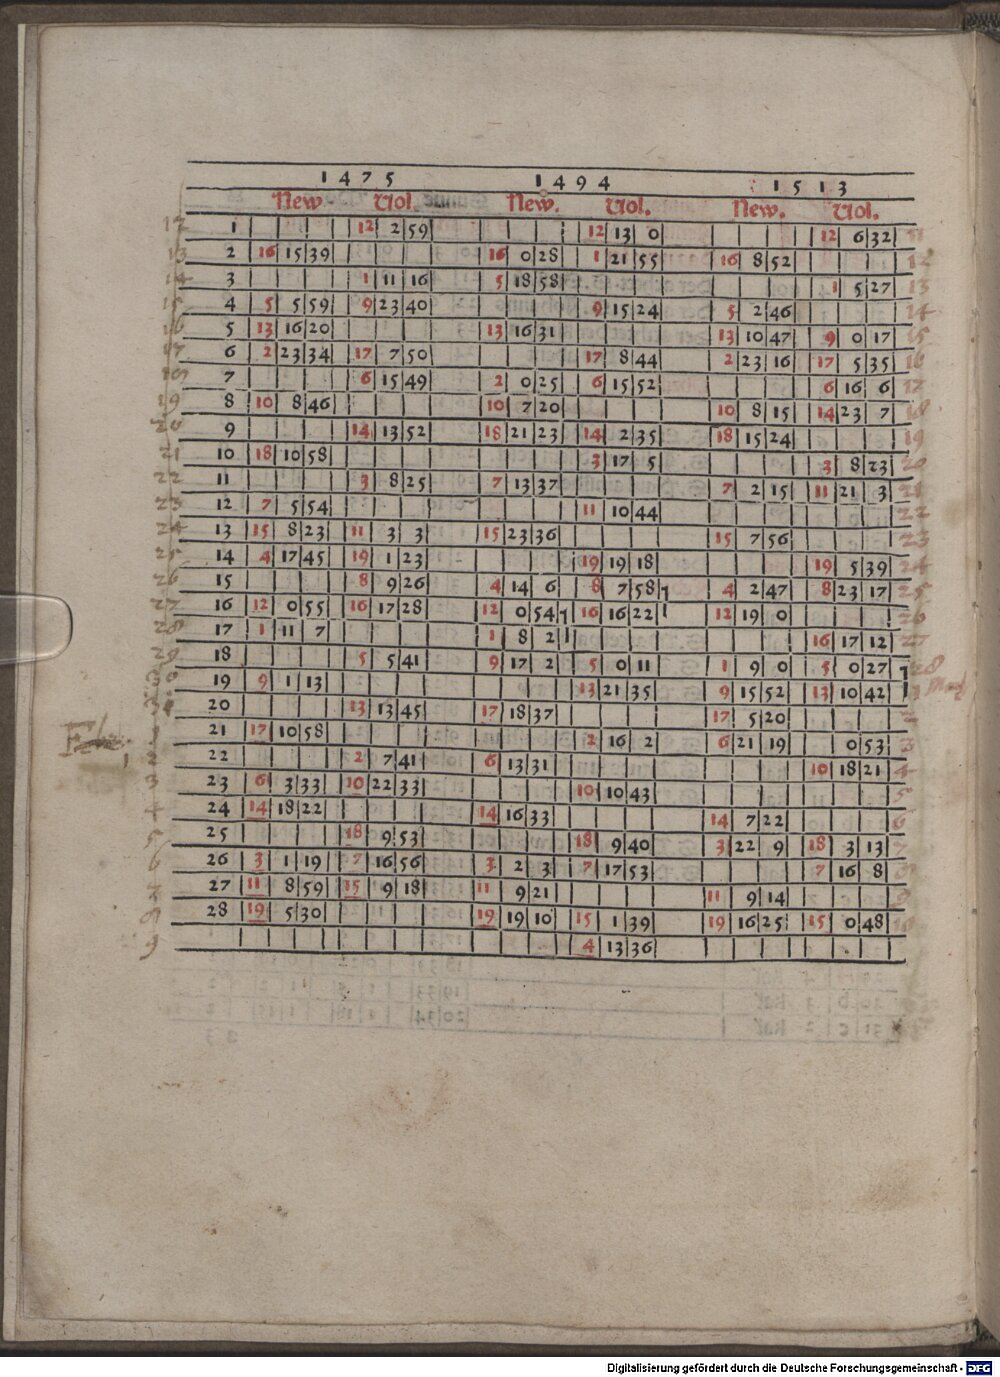 1475 1494 1513
New. Vol. New. Vol. New. Vol.
1 12 2 59 12 13 0 12 6 32
2 16 15 39 16 0 28 1 21 55 16 8 52
3 1 11 16 5 18 58 1 5 27
4 5 5 59 9 23 40 9 15 24 5 2 46
5 13 16 20 13 16 31 13 10 47 9 0 17
6 2 23 34 17 7 50 17 8 44 2 23 16 17 5 35
7 6 15 49 2 0 25 6 15 52 6 16 6
8 10 8 46 10 7 20 10 8 15 14 23 7
9 14 13 52 18 21 23 14 2 35 18 15 24
10 18 10 58 3 17 5 3 8 23
11 3 8 25 7 13 37 7 2 15 11 21 3
12 7 5 54 11 10 44
13 15 8 23 11 3 3 15 23 36 15 7 56
14 4 17 45 19 1 23 19 19 18 19 5 39
15 8 9 26 4 14 6 8 7 58 4 2 47 8 23 17
16 12 0 55 16 17 28 12 0 54 16 16 22 12 19 0
17 1 11 7 1 8 2 16 17 12
18 5 5 41 9 17 2 5 0 11 1 9 0 5 0 27
19 9 1 13 13 21 35 9 15 52 13 10 42
20 13 13 45 17 18 37 17 5 20
21 17 10 58 2 16 2 6 21 19 0 53
22 2 7 41 6 13 31 10 18 21
23 6 3 33 10 22 33 10 10 43
24 14 18 22 14 16 33 14 7 22
25 18 9 53 18 9 40 3 22 9 18 3 13
26 3 1 19 7 16 56 3 2 3 7 17 53 7 16 8
27 11 8 59 15 9 18 11 9 21 11 9 14
28 19 5 30 19 19 10 15 1 39 19 16 25 15 0 48
4 13 36
Digitalisierung gefördert durch die Deutsche Forschungsgemeinschaft - DFG